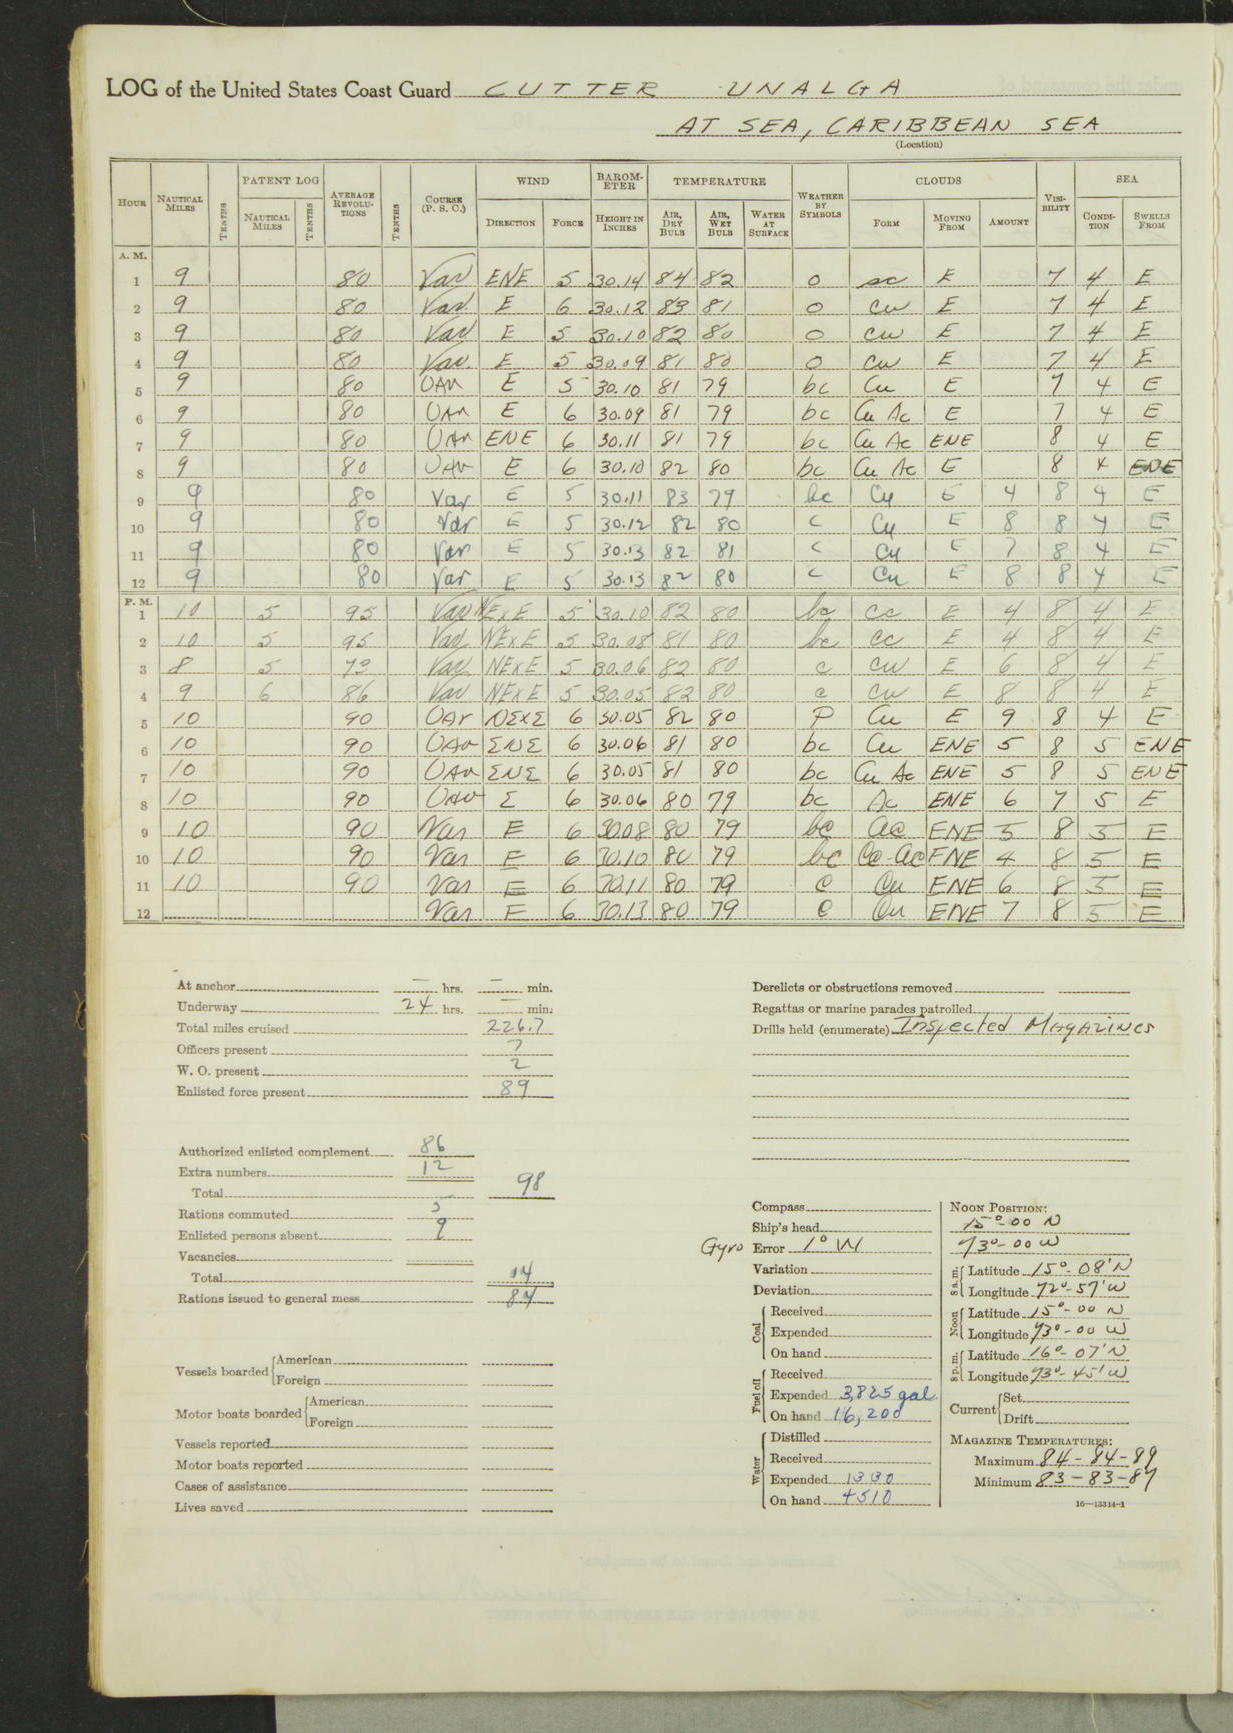 LOG of the United States Coast Guard CUTTER UNALGA
AT SEA, CARIBBEAN SEA
(Location)
HOUR NAUTICAL MILES TENTHS PATENT LOG NAUTICAL MILES TENTHS AVERAGE REVOLUTIONS TENTHS COURSE (P. S. C.) WIND DIRECTION FORCE BAROMETER HEIGHT IN INCHES TEMPERATURE AIR, DRY BULB AIR, WET BULB WATER AT SURFACE WEATHER BY SYMBOLS CLOUDS FORM MOVING FROM AMOUNT VISIBILITY SEA CONDITION SWELLS FROM
A. M.
1 9 80 Var ENE 5 30.14 84 82 o sc E 7 4 E
2 9 80 Var. E 6 30.12 83 81 o cu E 7 4 E
3 9 80 Var E 5 30.10 82 80 o cu E 7 4 E
4 9 80 Var. E 5 30.09 81 80 o cu E 7 4 E
5 9 80 VAR E 5 30.10 81 79 bc Cu E 7 4 E
6 9 80 VAR E 6 30.09 81 79 bc Cu Ac E 7 4 E
7 9 80 VAR ENE 6 30.11 81 79 bc Cu Ac ENE 8 4 E
8 9 80 VAR E 6 30.10 82 80 bc Cu Ac E 8 4 ENE
9 9 80 Var E 5 30.11 83 79 bc Cu E 4 8 4 E
10 9 80 Var E 5 30.12 82 80 c Cu E 8 8 4 E
11 9 80 Var E 5 30.13 82 81 c Cu E 7 8 4 E
12 9 80 Var E 5 30.13 82 80 c Cu E 8 8 4 E
P. M.
1 10 5 95 Var NExE 5 30.10 82 80 bc cc E 4 8 4 E
2 10 5 95 Var NExE 5 30.08 81 80 bc cc E 4 8 4 E
3 8 5 73 Var NExE 5 30.06 82 80 c cu E 6 8 4 E
4 9 6 86 Var NExE 5 30.05 82 80 c cu E 8 8 4 E
5 10 90 VAr NExE 6 30.05 82 80 P Cu E 9 8 4 E
6 10 90 VAr ENE 6 30.06 81 80 bc Cu ENE 5 8 5 ENE
7 10 90 VAr ENE 6 30.05 81 80 bc Cu Ac ENE 5 8 5 ENE
8 10 90 VAr E 6 30.06 80 79 bc Ac ENE 6 7 5 E
9 10 90 Var E 6 30.08 80 79 bc Ac ENE 5 8 5 E
10 10 90 Var E 6 30.10 80 79 bc Cc-Ac ENE 4 8 5 E
11 10 90 Var E 6 30.11 80 79 c Cu ENE 6 8 5 E
12 Var E 6 30.13 80 79 c Cu ENE 7 8 5 E
At anchor — hrs. — min.
Underway 24 hrs. — min.
Total miles cruised 226.7
Officers present 7
W. O. present 2
Enlisted force present 89
Authorized enlisted complement 86
Extra numbers 12
Total 98
Rations commuted 5
Enlisted persons absent 9
Vacancies
Total 14
Rations issued to general mess 84
Vessels boarded American
Foreign
Motor boats boarded American
Foreign
Vessels reported
Motor boats reported
Cases of assistance
Lives saved
Derelicts or obstructions removed
Regattas or marine parades patrolled
Drills held (enumerate) Inspected Magazines
Compass
Ship's head
Gyro Error 1° W
Variation
Deviation
Coal Received
Expended
On hand
Fuel oil Received
Expended 3,825 gal.
On hand 16,200
Water Distilled
Received
Expended 1330
On hand 4510
NOON POSITION:
15°-00 N
73°-00 W
8 a. m. Latitude 15°-08'N
Longitude 72°-57'W
Noon Latitude 15°-00 N
Longitude 73°-00 W
8 p. m. Latitude 16°-07'N
Longitude 73°-45'W
Current Set
Drift
MAGAZINE TEMPERATURES:
Maximum 84-84-89
Minimum 83-83-87
16—13314-1